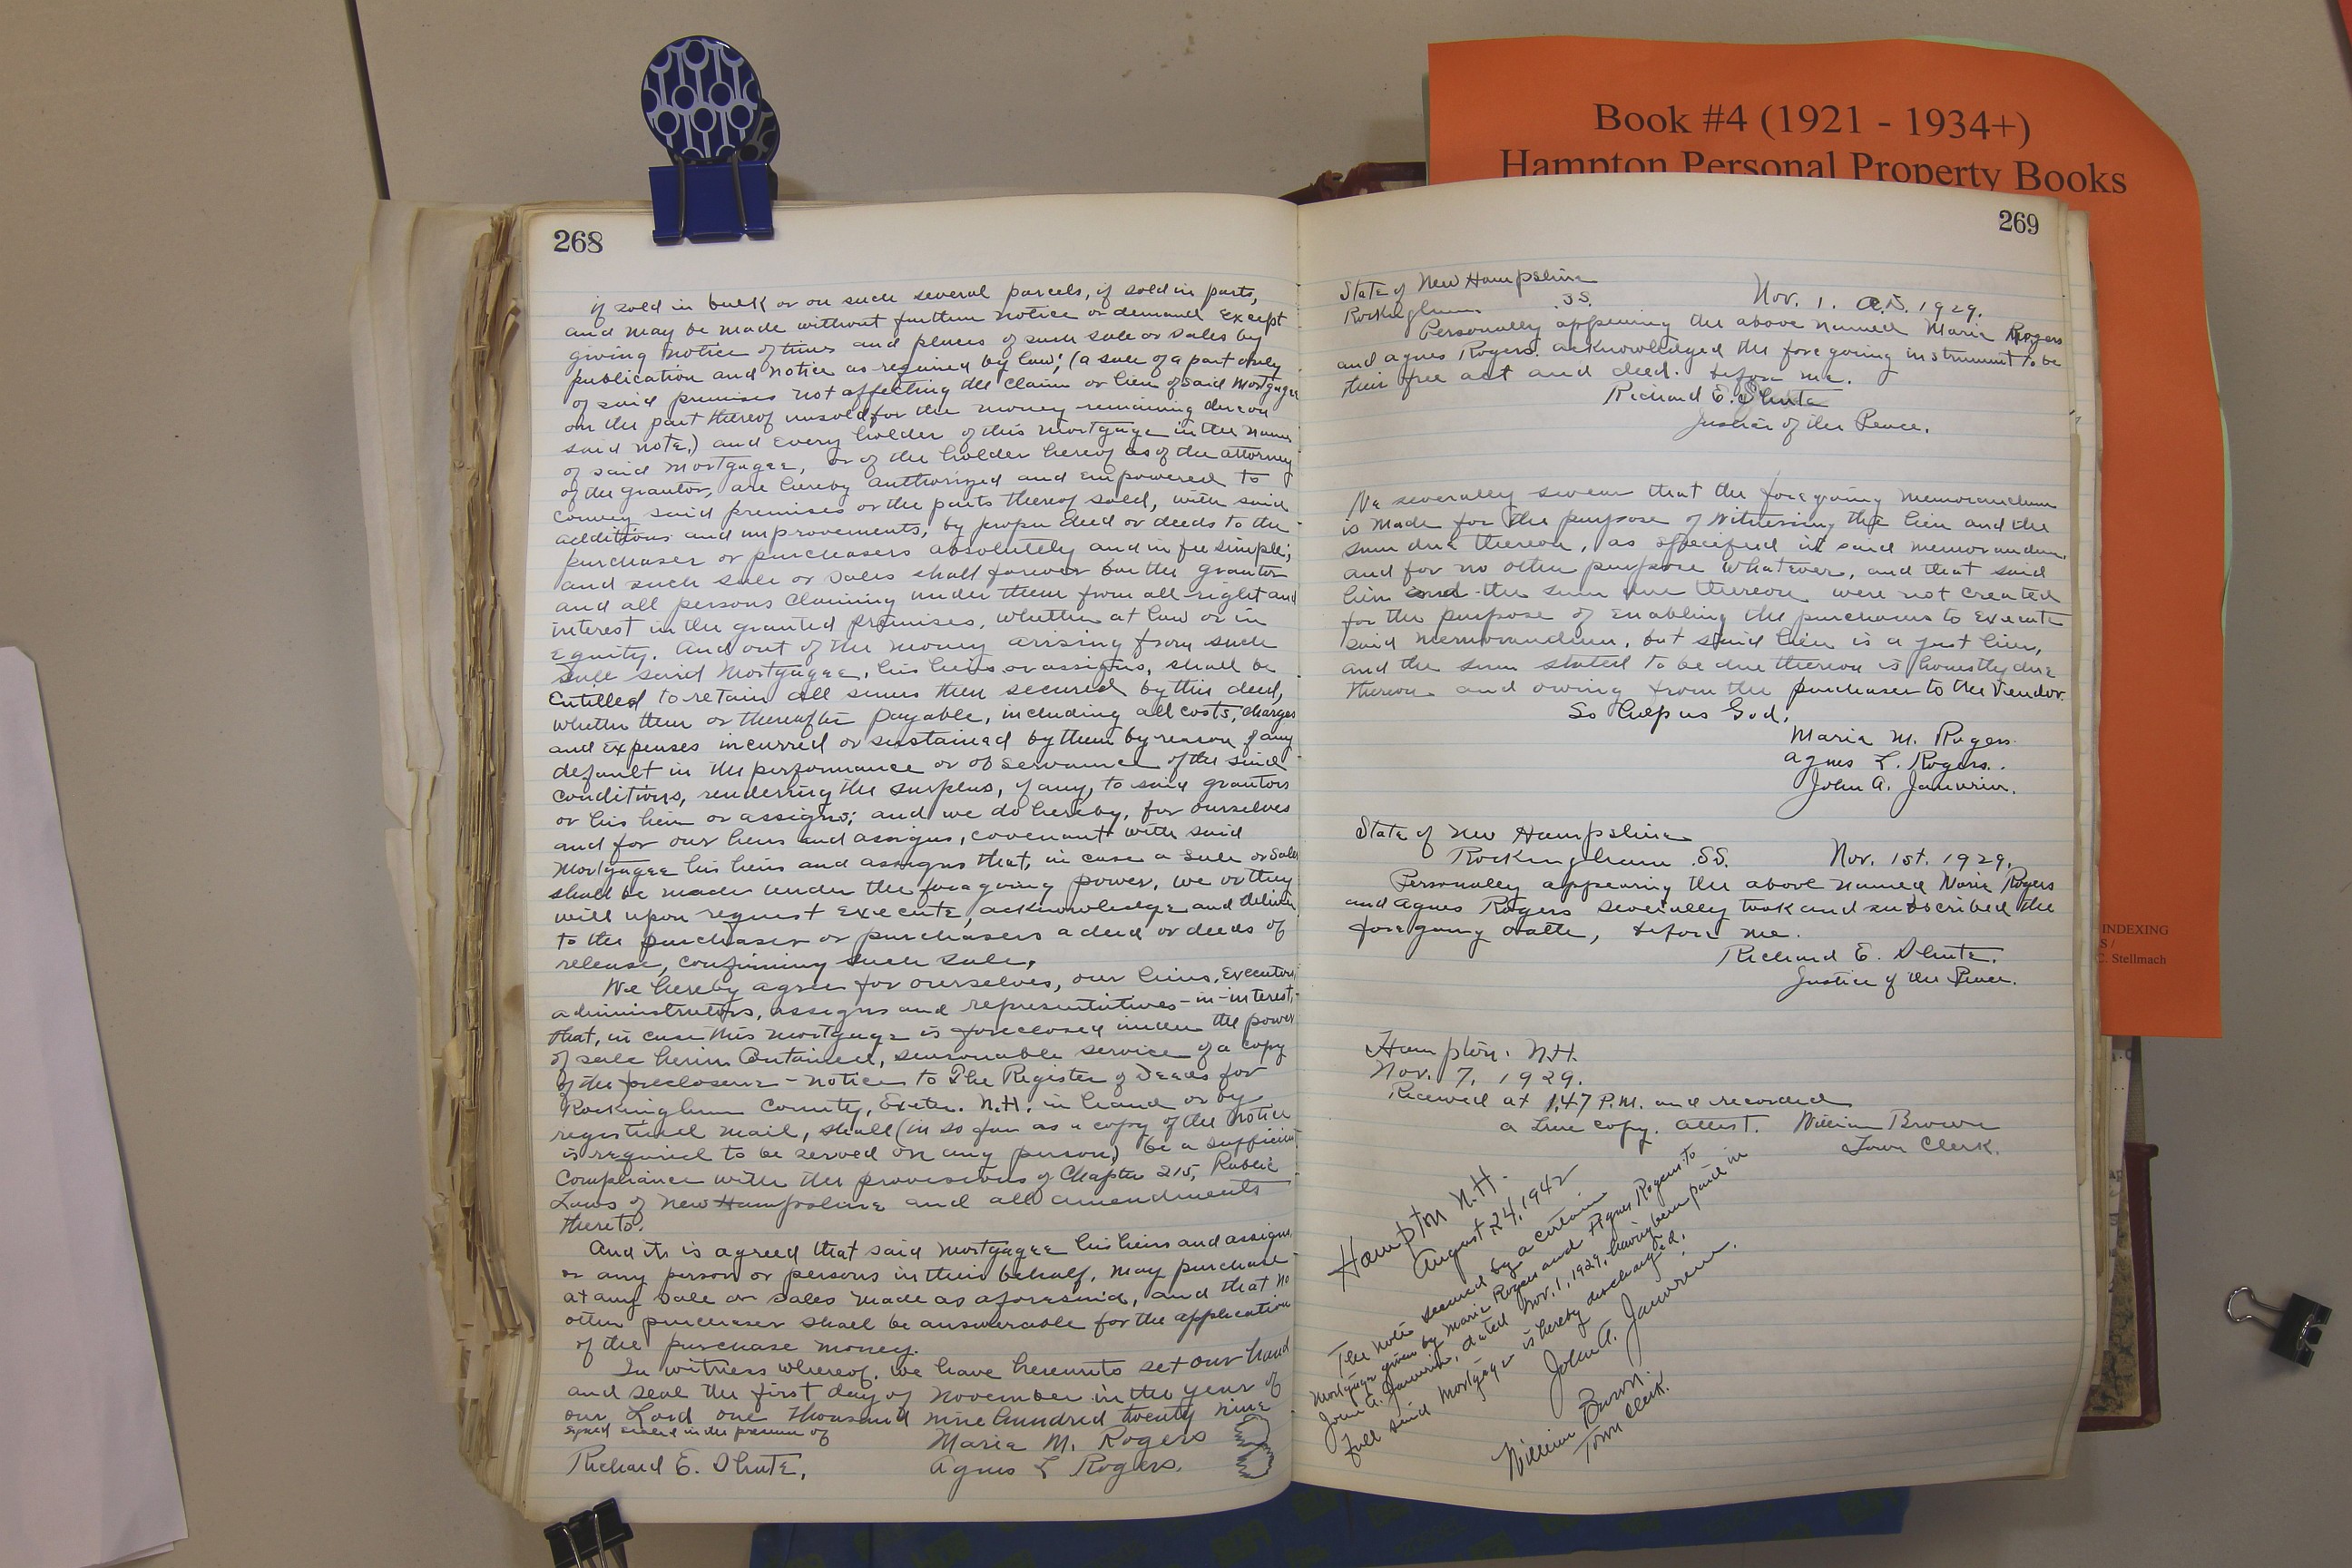 Book #4 (1921 - 1934+)
Hampton Personal Property Books
INDEXING
S /
C. Stellmach
268
if sold in bulk or on such several parcels, if sold in parts,
and may be made without further notice or demand except
giving notice of times and places of such sale or sales by
publication and notice as required by law; (a sale of a part only
of said premises not affecting the claim or lien of said Mortgagee
on the part thereof unsold for the money remaining due on
said note,) and every holder of this Mortgage in the name
of said Mortgagee, or of the holder hereof as of the attorney
of the grantor, are hereby authorized and empowered to
convey said premises or the parts thereof sold, with said
additions and improvements, by proper deed or deeds to the
purchaser or purchasers absolutely and in fee simple;
and such sale or sales shall forever bar the grantor
and all persons claiming under them from all right and
interest in the granted premises, whether at law or in
Equity. And out of the money arising from such
sale said Mortgagee, his heirs or assigns, shall be
Entitled to retain all sums then secured by this deed,
whether then or thereafter payable, including all costs, charges
and expenses incurred or sustained by them by reason of any
default in the performance or observance of the said
conditions, rendering the surplus, if any, to said grantors
or his heir or assigns; and we do hereby, for ourselves
and for our heirs and assigns, covenant with said
Mortgagee his heirs and assigns that, in case a sale or sales
shall be made under the foregoing power, we or they
will upon request execute, acknowledge and deliver
to the purchaser or purchasers a deed or deeds of
release, confirming such sale.
We hereby agree for ourselves, our heirs, Executors,
administrators, assigns and representatives-in-interest,
that, in case this mortgage is foreclosed under the power
of sale herein contained, seasonable service of a copy
of the foreclosure-notice to The Register of Deeds for
Rockingham County, Exeter. N.H. in hand or by
registered mail, shall (in so far as a copy of the notice
is required to be served on any person,) be a sufficient
compliance with the provisions of Chapter 215, Public
Laws of New Hampshire and all amendments
thereto.
And it is agreed that said Mortgagee his heirs and assigns,
or any person or persons in their behalf, may purchase
at any sale or sales made as aforesaid, and that no
other purchaser shall be answerable for the application
of the purchase money.
In witness whereof, we have hereunto set our hand
and seal the first day of November in the year of
our Lord one thousand nine hundred twenty nine
signed sealed in the presence of
Maria M. Rogers
Richard E. Shute,
Agnes L Rogers.
269
State of New Hampshire
Rockingham SS.
Nov. 1. A.D. 1929.
Personally appearing the above named Maria Rogers
and Agnes Rogers. acknowledged the foregoing instrument to be
their free act and deed. before me.
Richard E. Shute
Justice of the Peace.
We severally swear that the foregoing Memorandum
is made for the purpose of Witnessing the lien and the
sum due thereon, as specified in said memorandum,
and for no other purpose whatever, and that said
lien and the sum due thereon were not created
for the purpose of enabling the purchasers to execute
said Memorandum, but said lien is a just lien,
and the sum stated to be due thereon is honestly due
thereon and owing from the purchaser to the Vendor.
So help us God.
Maria M. Rogers
Agnes L. Rogers.
John A. Janvrin.
State of New Hampshire
Rockingham SS. Nov. 1st. 1929,
Personally appearing the above named Maria Rogers
and Agnes Rogers severally took and subscribed the
foregoing oath, before me.
Richard E. Shute.
Justice of the Peace.
Hampton. N.H.
Nov. 7, 1929.
Received at 1,47 P.M. and recorded
a true copy. attest. William Brown
Town Clerk.
Hampton N.H.
August 24, 1942
The note secured by a certain
Mortgage given by Maria Rogers and Agnes Rogers to
John A. Janvrin, dated Nov. 1, 1929, having been paid in
full said Mortgage is hereby discharged.
John A. Janvrin.
William Brown.
Town Clerk.